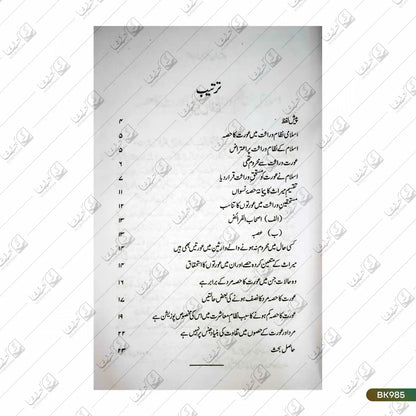 ترتیب
پیش لفظ ۴
اسلامی نظام وراثت میں عورت کا حصہ ۵
اسلام کے نظام وراثت پر اعتراض ۵
عورت وراثت سے محروم تھی ۶
اسلام نے عورت کو مستحق وراثت قرار دیا ۷
تقسیم میراث کا پیمانہ حصہ نسواں ۱۱
مستحقین وراثت میں عورتوں کا تناسب ۱۲
(الف) اصحاب الفرائض ۱۳
(ب) عصبہ ۱۳
کسی حال میں محروم نہ ہونے والے وارثین میں عورتیں بھی ہیں ۱۳
میراث کے متعین کردہ حصے اور ان میں عورتوں کا استحقاق ۱۴
وہ حالات جن میں عورت کا حصہ مرد کے برابر ہے
عورت کا حصہ مرد کا نصف ہونے کی بعض حالتیں ۱۷
عورت کا حصہ کم ہونے کا سبب نظام معاشرت میں اس کی مخصوص پوزیشن ہے ۱۹
مرد اور عورت کے حصوں میں تفاوت کی بنیاد جنس پر نہیں ہے ۲۲
حاصل بحث ۲۳
BK985